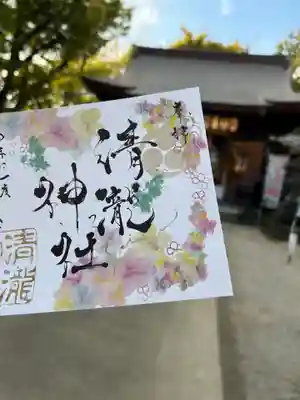 奉拝
清瀧
神社
清瀧